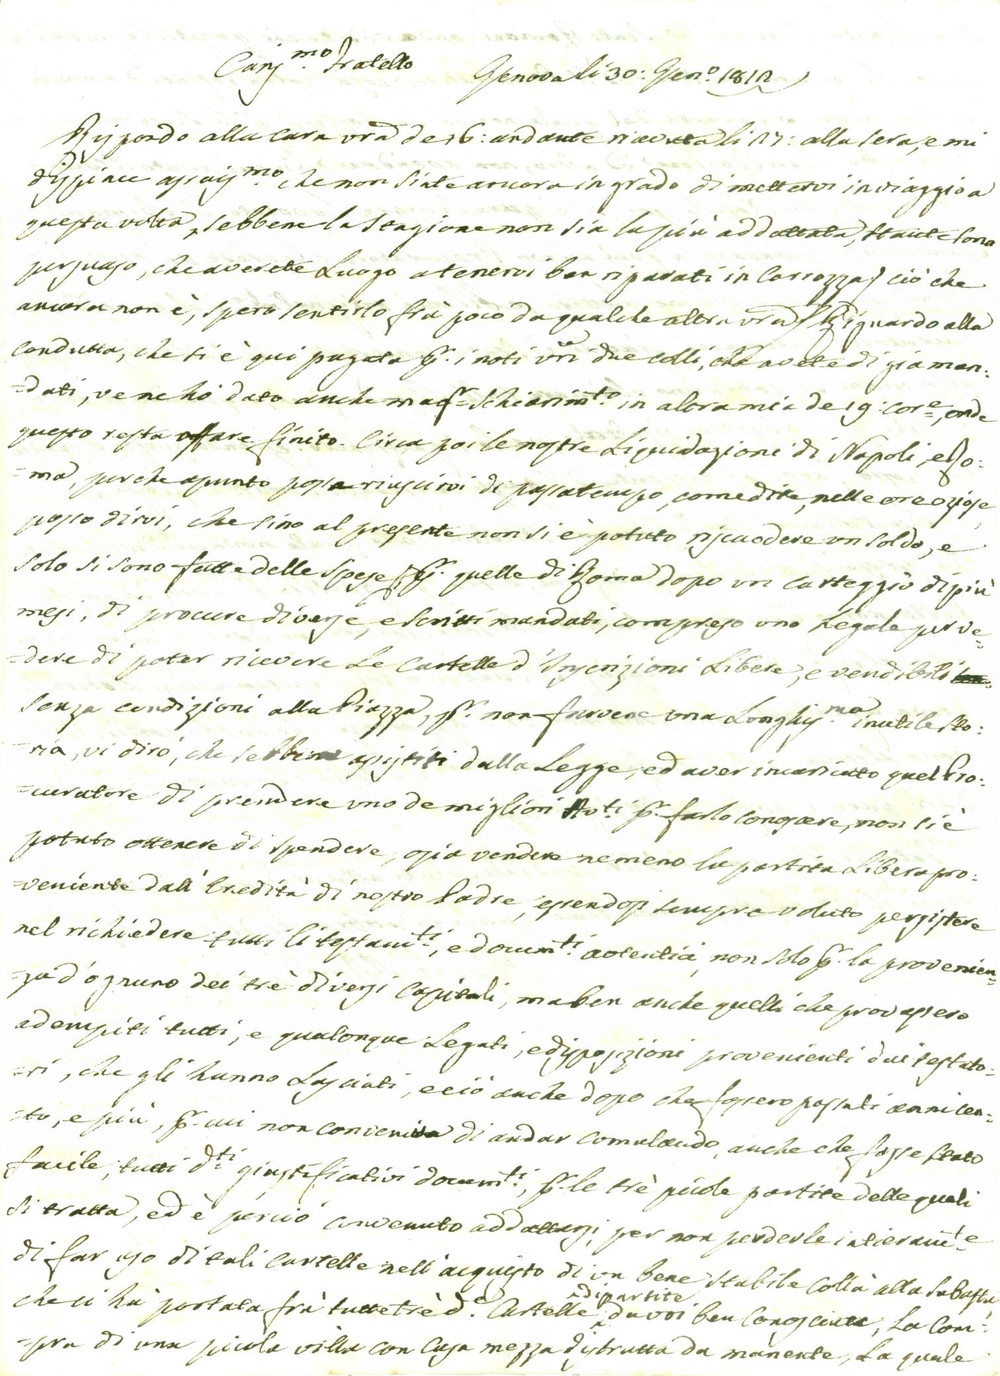 Cariss.mo Fratello Genova li 30: Gen.o 1812
Rispondo alla cara vra de 26: andante ricevuta li 27: alla sera, e mi
dispiace assaiss.mo che non siate ancora in grado di mettervi in viaggio a
questa volta, sebbene la Stagione non sia la più addattata, stante sono
persuaso, che averete Luogo a tenervi ben riparati in Carrozza; ciò che
ancora non è, spero sentirlo frà poco da qualche altra vra. Riguardo alla
condutta, che si è qui pagata p. i noti vri due colli, che avete di già man:
=dati, ve ne hò dato anche magr. Schiarim.to in altra mia de 19: cor.e, onde
questo resta affare finito. Circa poi le nostre Liquidazioni di Napoli, e Ro:
=ma, perche apunto possa riuscirvi di passatempo, come dite, nelle ore oziose,
posso dirvi, che sino al presente non si è potuto riscuodere un soldo, e
solo si sono fatte delle spese p. quelle di Roma dopo un carteggio di più
mesi, di procure diverse, e scritti mandati, compreso uno Legale per ve=
=dere di poter ricevere Le Cartelle d'Inscrizioni Libere, e vendibili
senza condizioni alla Piazza, p. non farvene una Longhiss.ma inutile sto:
=ria, vi dirò, che sebbene assistiti dalla Legge, ed aver incaricato quel Pro:
=curatore di prendere uno de migliori Avv.ti p. farlo conoscere, non si è
potuto ottenere di spendere, ossia vendere nemeno la partita Libera pro:
=veniente dall'Eredità di nostro Padre, essendosi sempre voluto persistere
nel richiedere tutti li testam.ti, e docum.ti autentici, non solo p. la provenien=
=za d'ognuno dei trè diversi Capitali, ma ben anche quelli che provassero
adempiti tutti, e qualonque Legati, e disposizioni provenienti dai testato:
=ri, che gli hanno Lasciati, e ciò anche dopo che fossero passati anni cen=
=to, e più, p. cui non conveniva di andar comulando, anche che fosse stato
facile, tutti d.ti giustificativi docum.ti, p. le trè picole partite delle quali
si tratta, ed è perciò convenuto addattarsi, per non perderle intieram.e
di far uso di tali Cartelle nell'acquisto di un bene Stabile collà alla subasta
che ci hà portata frà tutte trè d.e Cartelle di partite da voi ben conosciute, La Com:
=pra di una picola villa con Casa mezza distrutta da manente, La quale